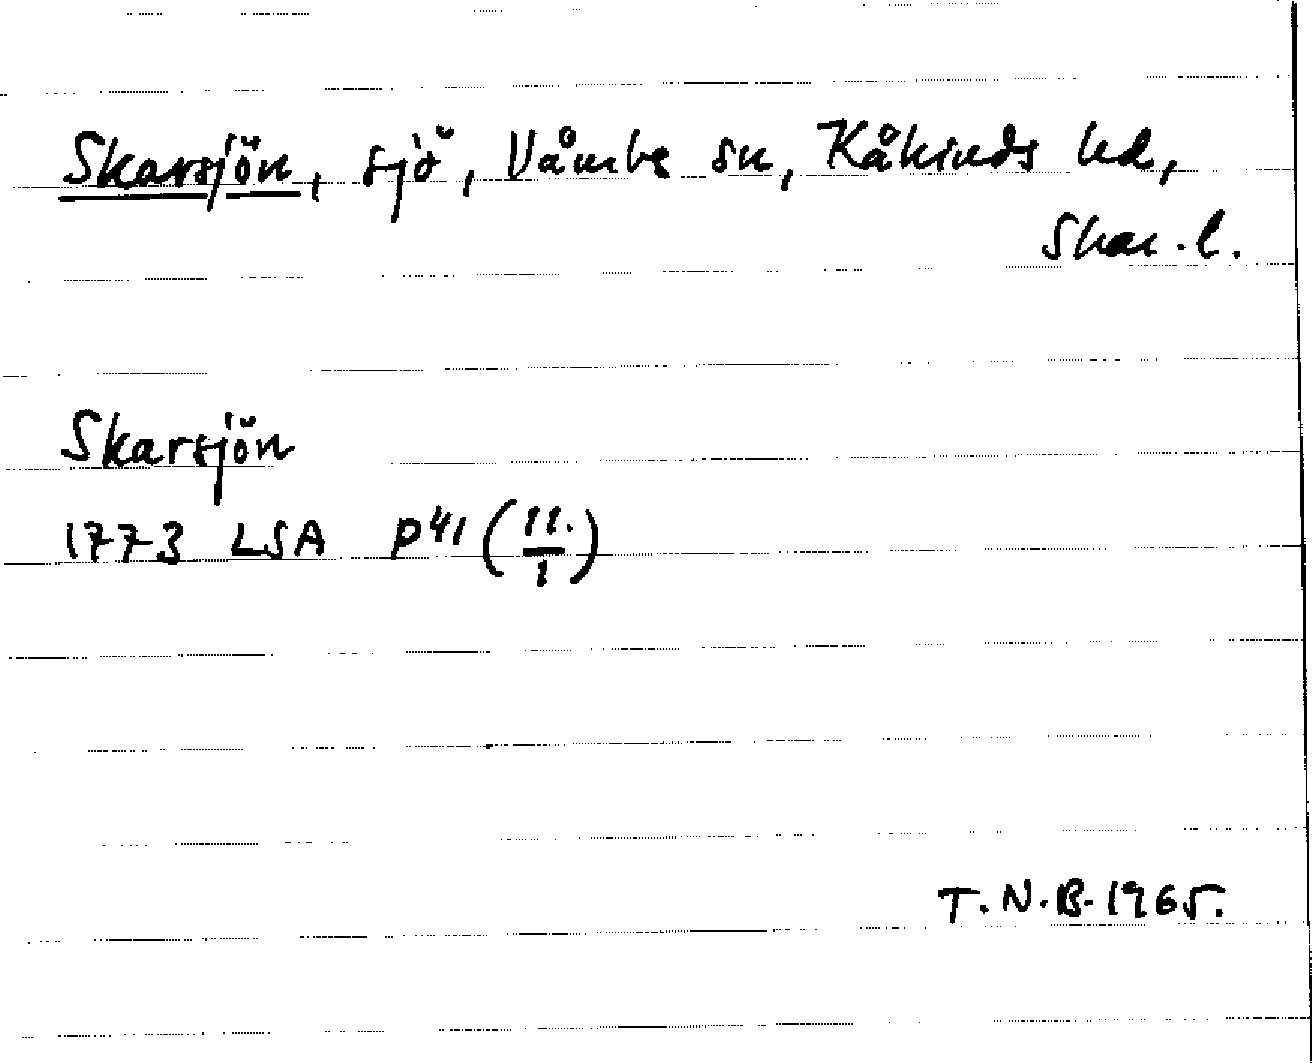 Skarsjön, sjö, Våmbs sn, Kåkinds hd,
Skar. l.
Skarsjön
1773 LSA P41 (11./1)
T.N.B. 1965.